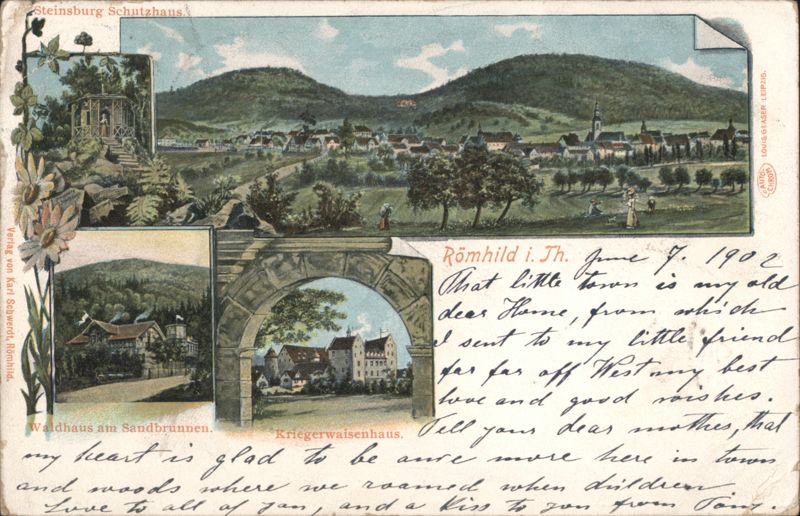 Steinsburg Schutzhaus.
LOUIS GLASER LEIPZIG.
AUTO CHROM
Verlag von Karl Schwerdt, Römhild.
Römhild i. Th. June 7. 1902
That little town is my old
dear Home, from which
I sent to my little friend
far far off West my best
love and good wishes.
Tell your dear mother, that
Waldhaus am Sandbrunnen.
Kriegerwaisenhaus.
my heart is glad to be once more here in town
and woods where we roamed when children
Love to all of you, and a Kiss to you from Tony.